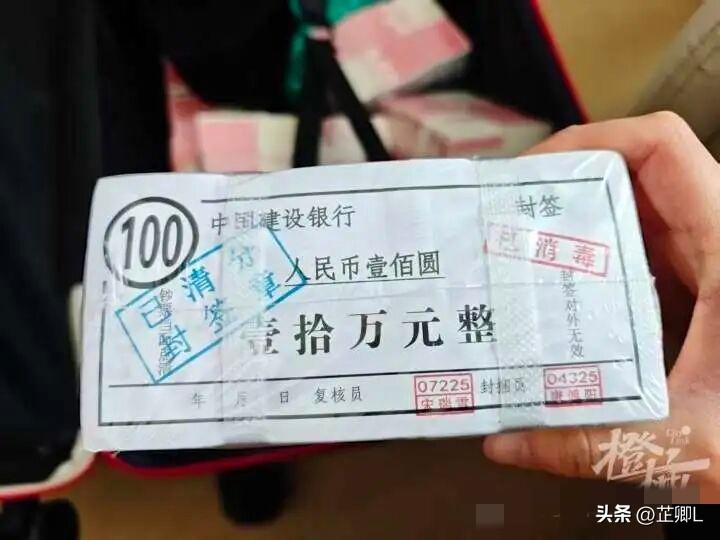 100
中国建设银行
封签
已消毒
人民币壹佰圆
壹拾万元整
封签对外无效
年 月 日 复核员
07225
封捆员
04325
橙柿
头条 @芷卿L